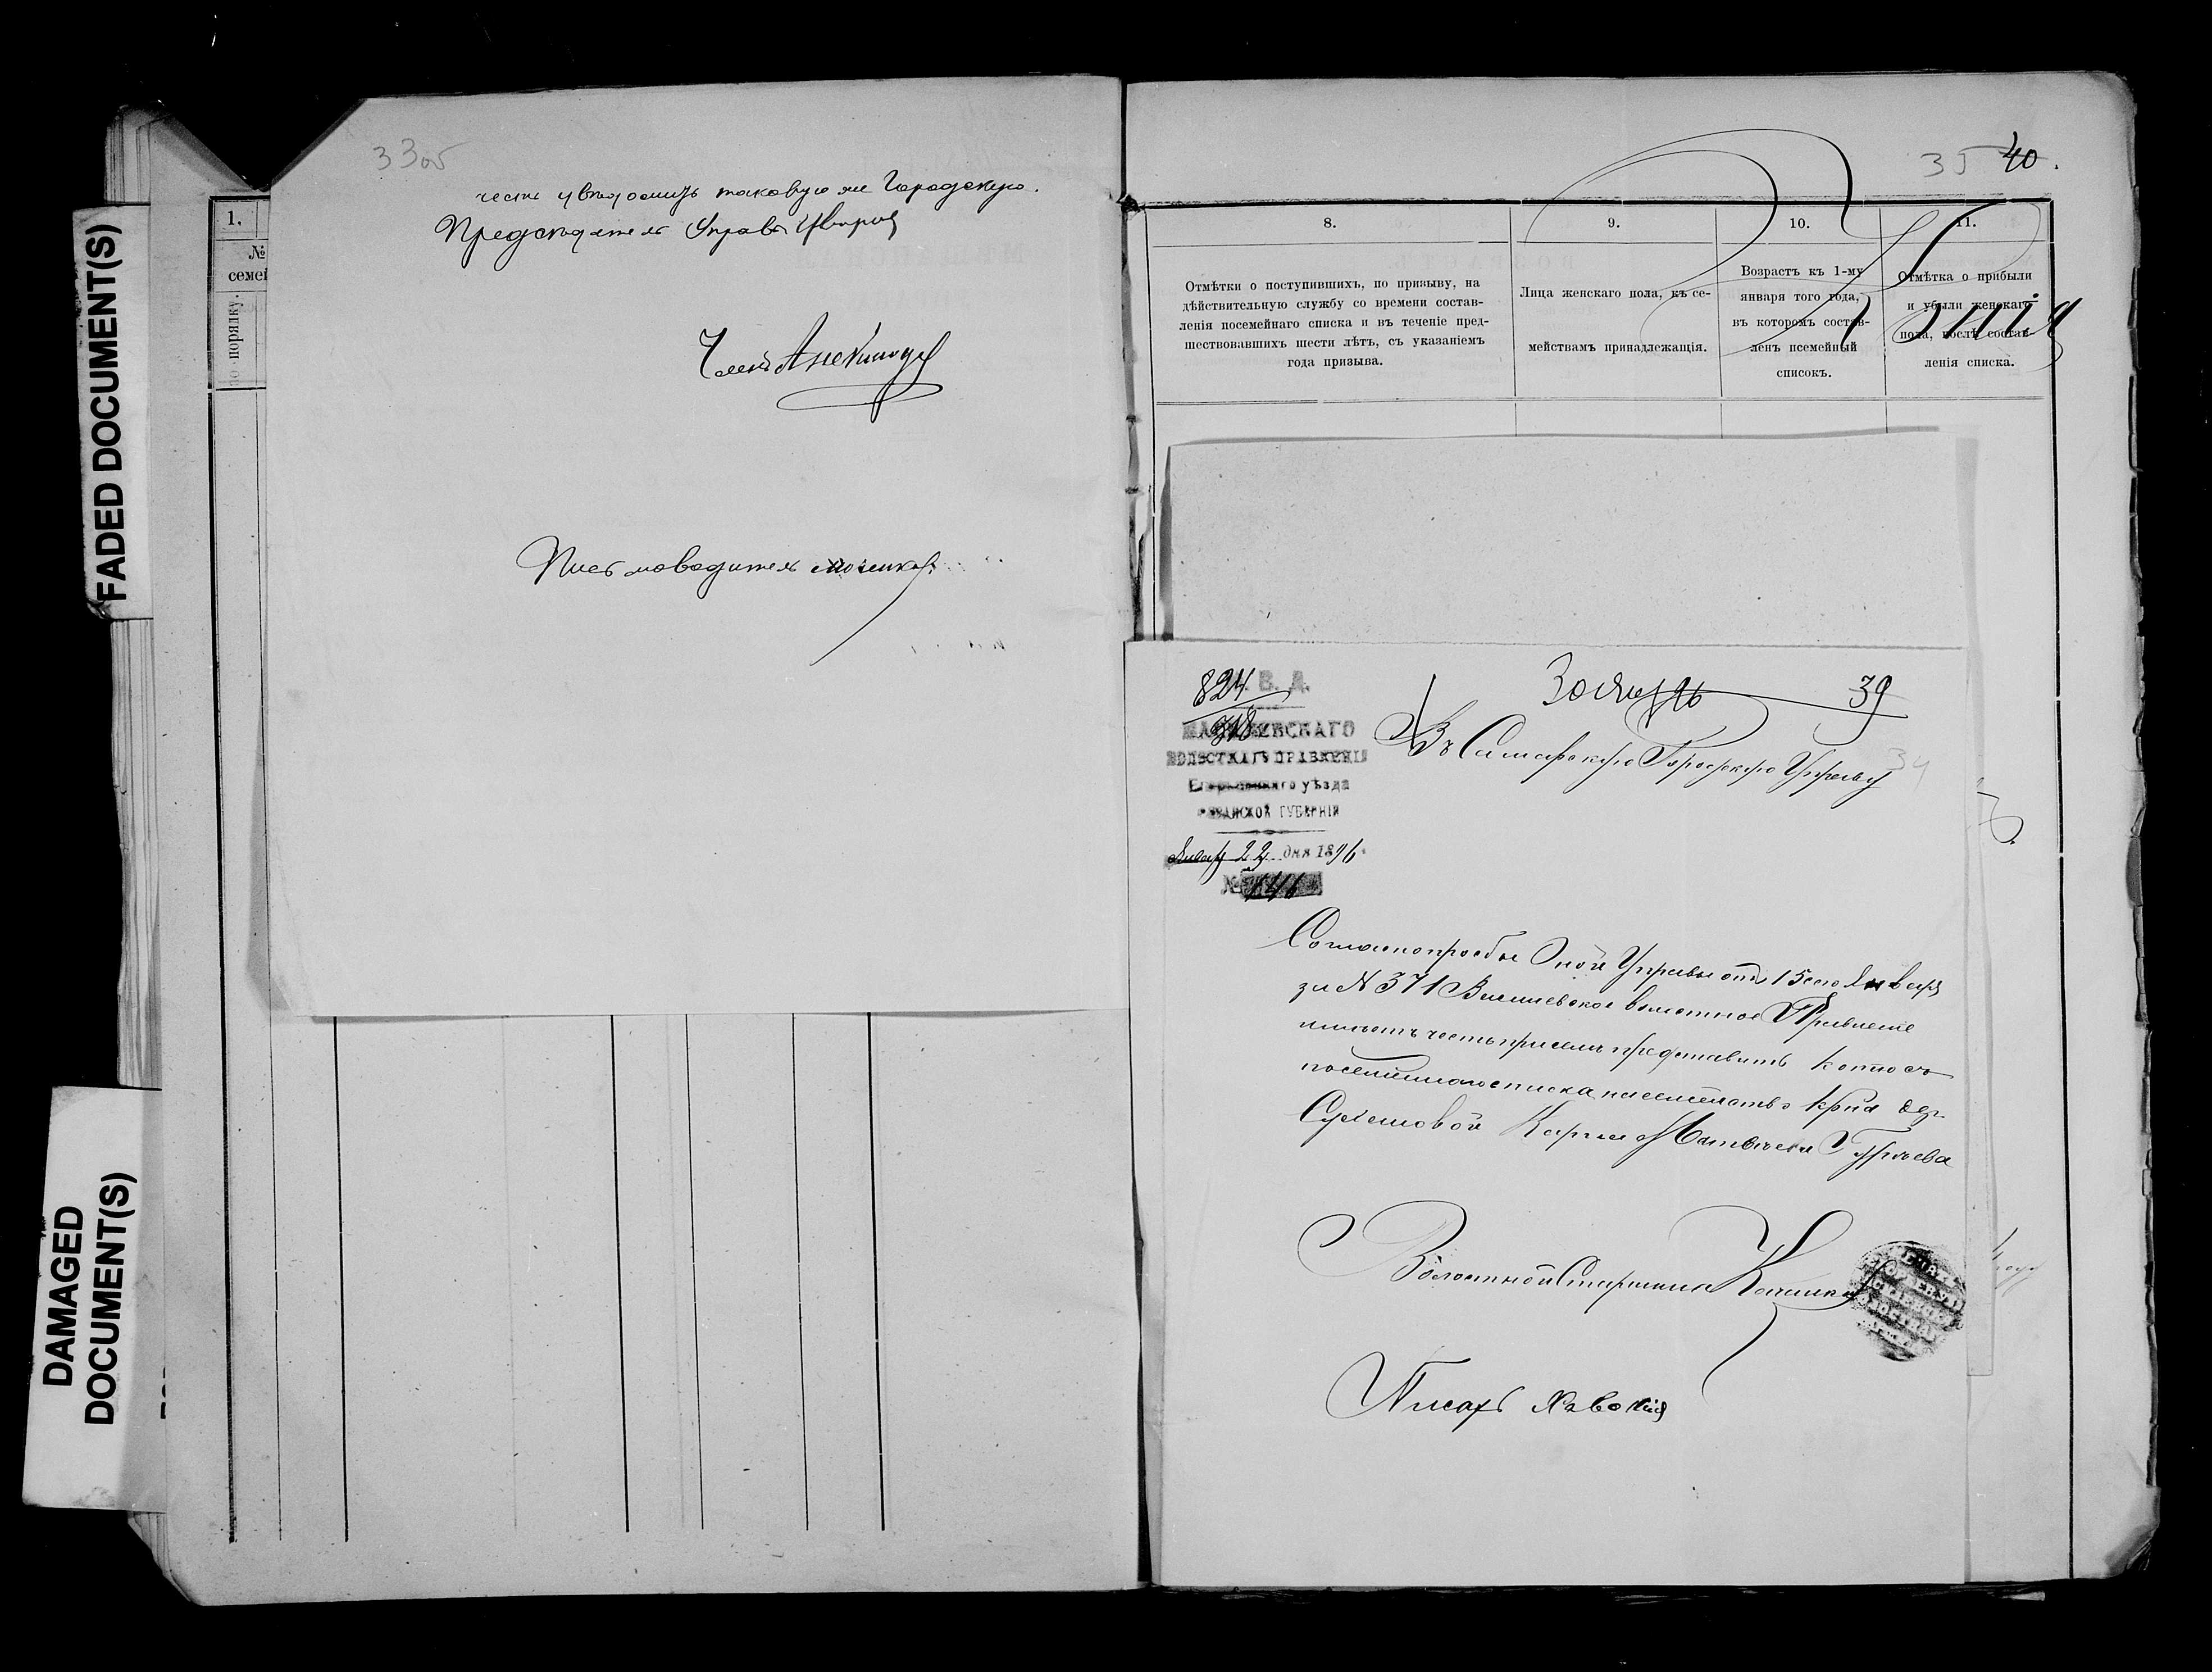 FADED DOCUMENT(S)
DAMAGED
DOCUMENT(S)
33об
1.
№
семей
по порядку.
честь увѣдомить таковую же Городскую.
Предсѣдатель Управы
Членъ
Письмоводитель
35 40.
8.
9.
10.
11.
Отмѣтки о поступившихъ, по призыву, на
дѣйствительную службу со времени состав-
ленія посемейнаго списка и въ теченіе пред-
шествовавшихъ шести лѣтъ, съ указаніемъ
года призыва.
Лица женскаго пола, къ се-
мействамъ принадлежащія.
Возрастъ къ 1-му
января того года,
въ которомъ состав-
ленъ псемейный
списокъ.
Отмѣтка о прибыли
и убыли женскаго
пола, послѣ состав-
ленія списка.
824
318
В. Д.
ВОЛОСТНАГО ПРАВЛЕНІЯ
уѣзда
ГУБЕРНІИ
22 дня 1896
№ 146
30 Янв 96
39
34
Въ Самарскую Городскую Управу
Согласно просьбы Оной Управы отъ 15сего Января
за № 371 волостное Правленіе
имѣетъ честь при семъ представить копію съ
посемейнаго списка на семейство кр-на дер.
Карпа Матвѣева Гурьева
Волостной Старшина
Писарь